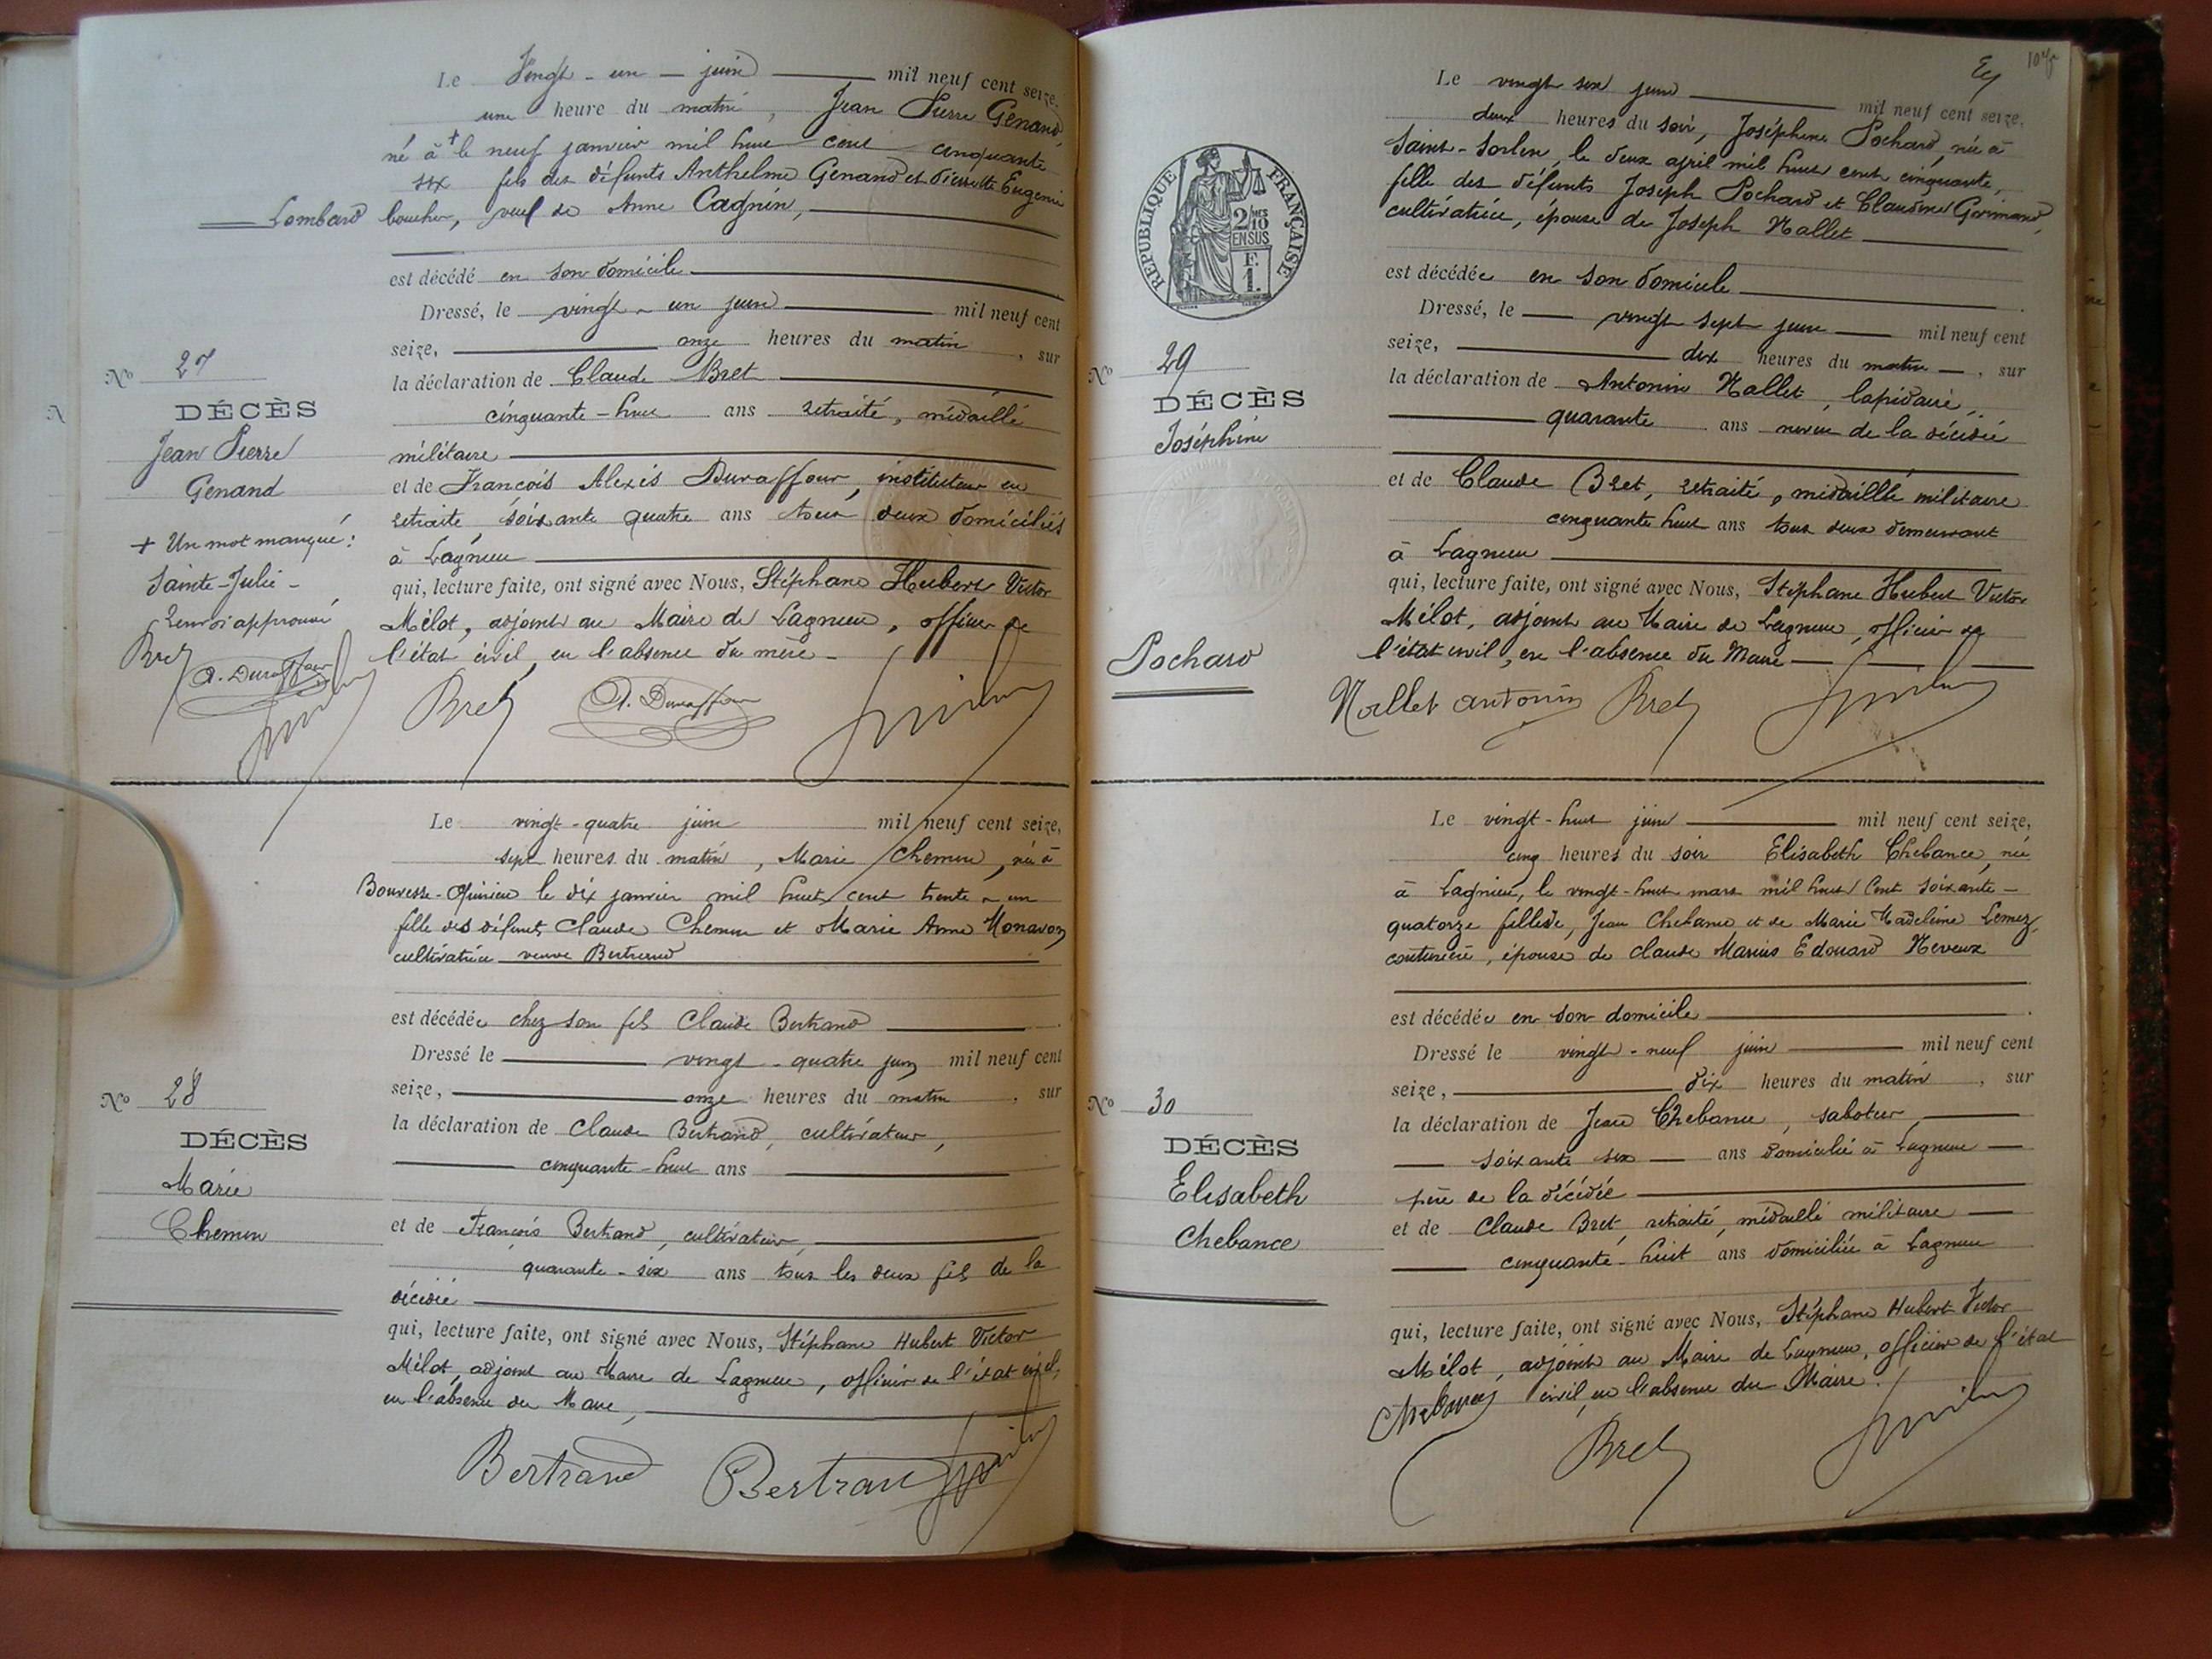 Le Vingt-un juin mil neuf cent seize,
une heure du matin, Jean Pierre Genand,
né à + le neuf janvier mil huit cent cinquante
six fils des défunts Anthelme Genand et Pierrette Eugénie
Lombard boucher, veuf de Anne Cagnin,
est décédé en son domicile
Dressé, le vingt-un juin mil neuf cent
seize, onze heures du matin, sur
la déclaration de Claude Bret
cinquante-huit ans retraité, médaillé
militaire
et de François Alexis Duraffour, instituteur en
retraite, soixante quatre ans tous deux domiciliés
à Lagnieu
qui, lecture faite, ont signé avec Nous, Stéphane Hubert Victor
Mélot, adjoint au Maire de Lagnieu, officier de
l'état civil, en l'absence du mère
Bret A. Duraffour
No 27
DÉCÈS
Jean Pierre
Genand
+ Un mot manqué:
Sainte-Julie-
Renvoi approuvé
Bret
A. Duraffour
Le vingt-quatre juin mil neuf cent seize,
sept heures du matin, Marie Chemin, née à
Bouvesse-Quirieu le dix janvier mil huit cent trente-un
fille des défunts Claude Chemin et Marie Anne Monavon
cultivatrice veuve Bertrand
est décédée chez son fils Claude Bertrand
Dressé le vingt-quatre juin mil neuf cent
seize, onze heures du matin, sur
la déclaration de Claude Bertrand, cultivateur,
cinquante-huit ans
et de François Bertrand, cultivateur,
quarante-six ans tous les deux fils de la
décédée
qui, lecture faite, ont signé avec Nous, Stéphane Hubert Victor
Mélot, adjoint au Maire de Lagnieu, officier de l'état civil,
en l'absence du Maire,
Bertrand Bertrand
No 28
DÉCÈS
Marie
Chemin
Le vingt six juin mil neuf cent seize,
deux heures du soir, Joséphine Pochard, née à
Saint-Sorlin, le deux avril mil huit cent cinquante,
fille des défunts Joseph Pochard et Claudine Gorimand,
cultivatrice, épouse de Joseph Nallet
est décédée en son domicile
Dressé, le vingt sept juin mil neuf cent
seize, dix heures du matin, sur
la déclaration de Antonin Nallet, lapidaire,
quarante ans neveu de la décédée
et de Claude Bret, retraité, médaillé militaire
cinquante huit ans tous deux demeurant
à Lagnieu
qui, lecture faite, ont signé avec Nous, Stéphane Hubert Victor
Mélot, adjoint au Maire de Lagnieu, officier de
l'état civil, en l'absence du Maire
Nallet antonin Bret
RÉPUBLIQUE FRANÇAISE
2/10
EN SUS
F.
1.
No 29
DÉCÈS
Joséphine
Pochard
Le vingt-huit juin mil neuf cent seize,
cinq heures du soir Elisabeth Chebance, née
à Lagnieu, le vingt-huit mars mil huit cent soixante-
quatorze fille de, Jean Chebance et de Marie Madeleine Lemez,
couturière, épouse de Claude Marius Edouard Neveux
est décédée en son domicile
Dressé le vingt-neuf juin mil neuf cent
seize, dix heures du matin, sur
la déclaration de Jean Chebance, saboteur
soixante six ans domicilié à Lagnieu
père de la décédée
et de Claude Bret, retraité, médaillé militaire
cinquante-huit ans domicilié à Lagnieu
qui, lecture faite, ont signé avec Nous, Stéphane Hubert Victor
Mélot, adjoint au Maire de Lagnieu, officier de l'état
civil, en l'absence du Maire.
Chebance
Bret
No 30
DÉCÈS
Elisabeth
Chebance